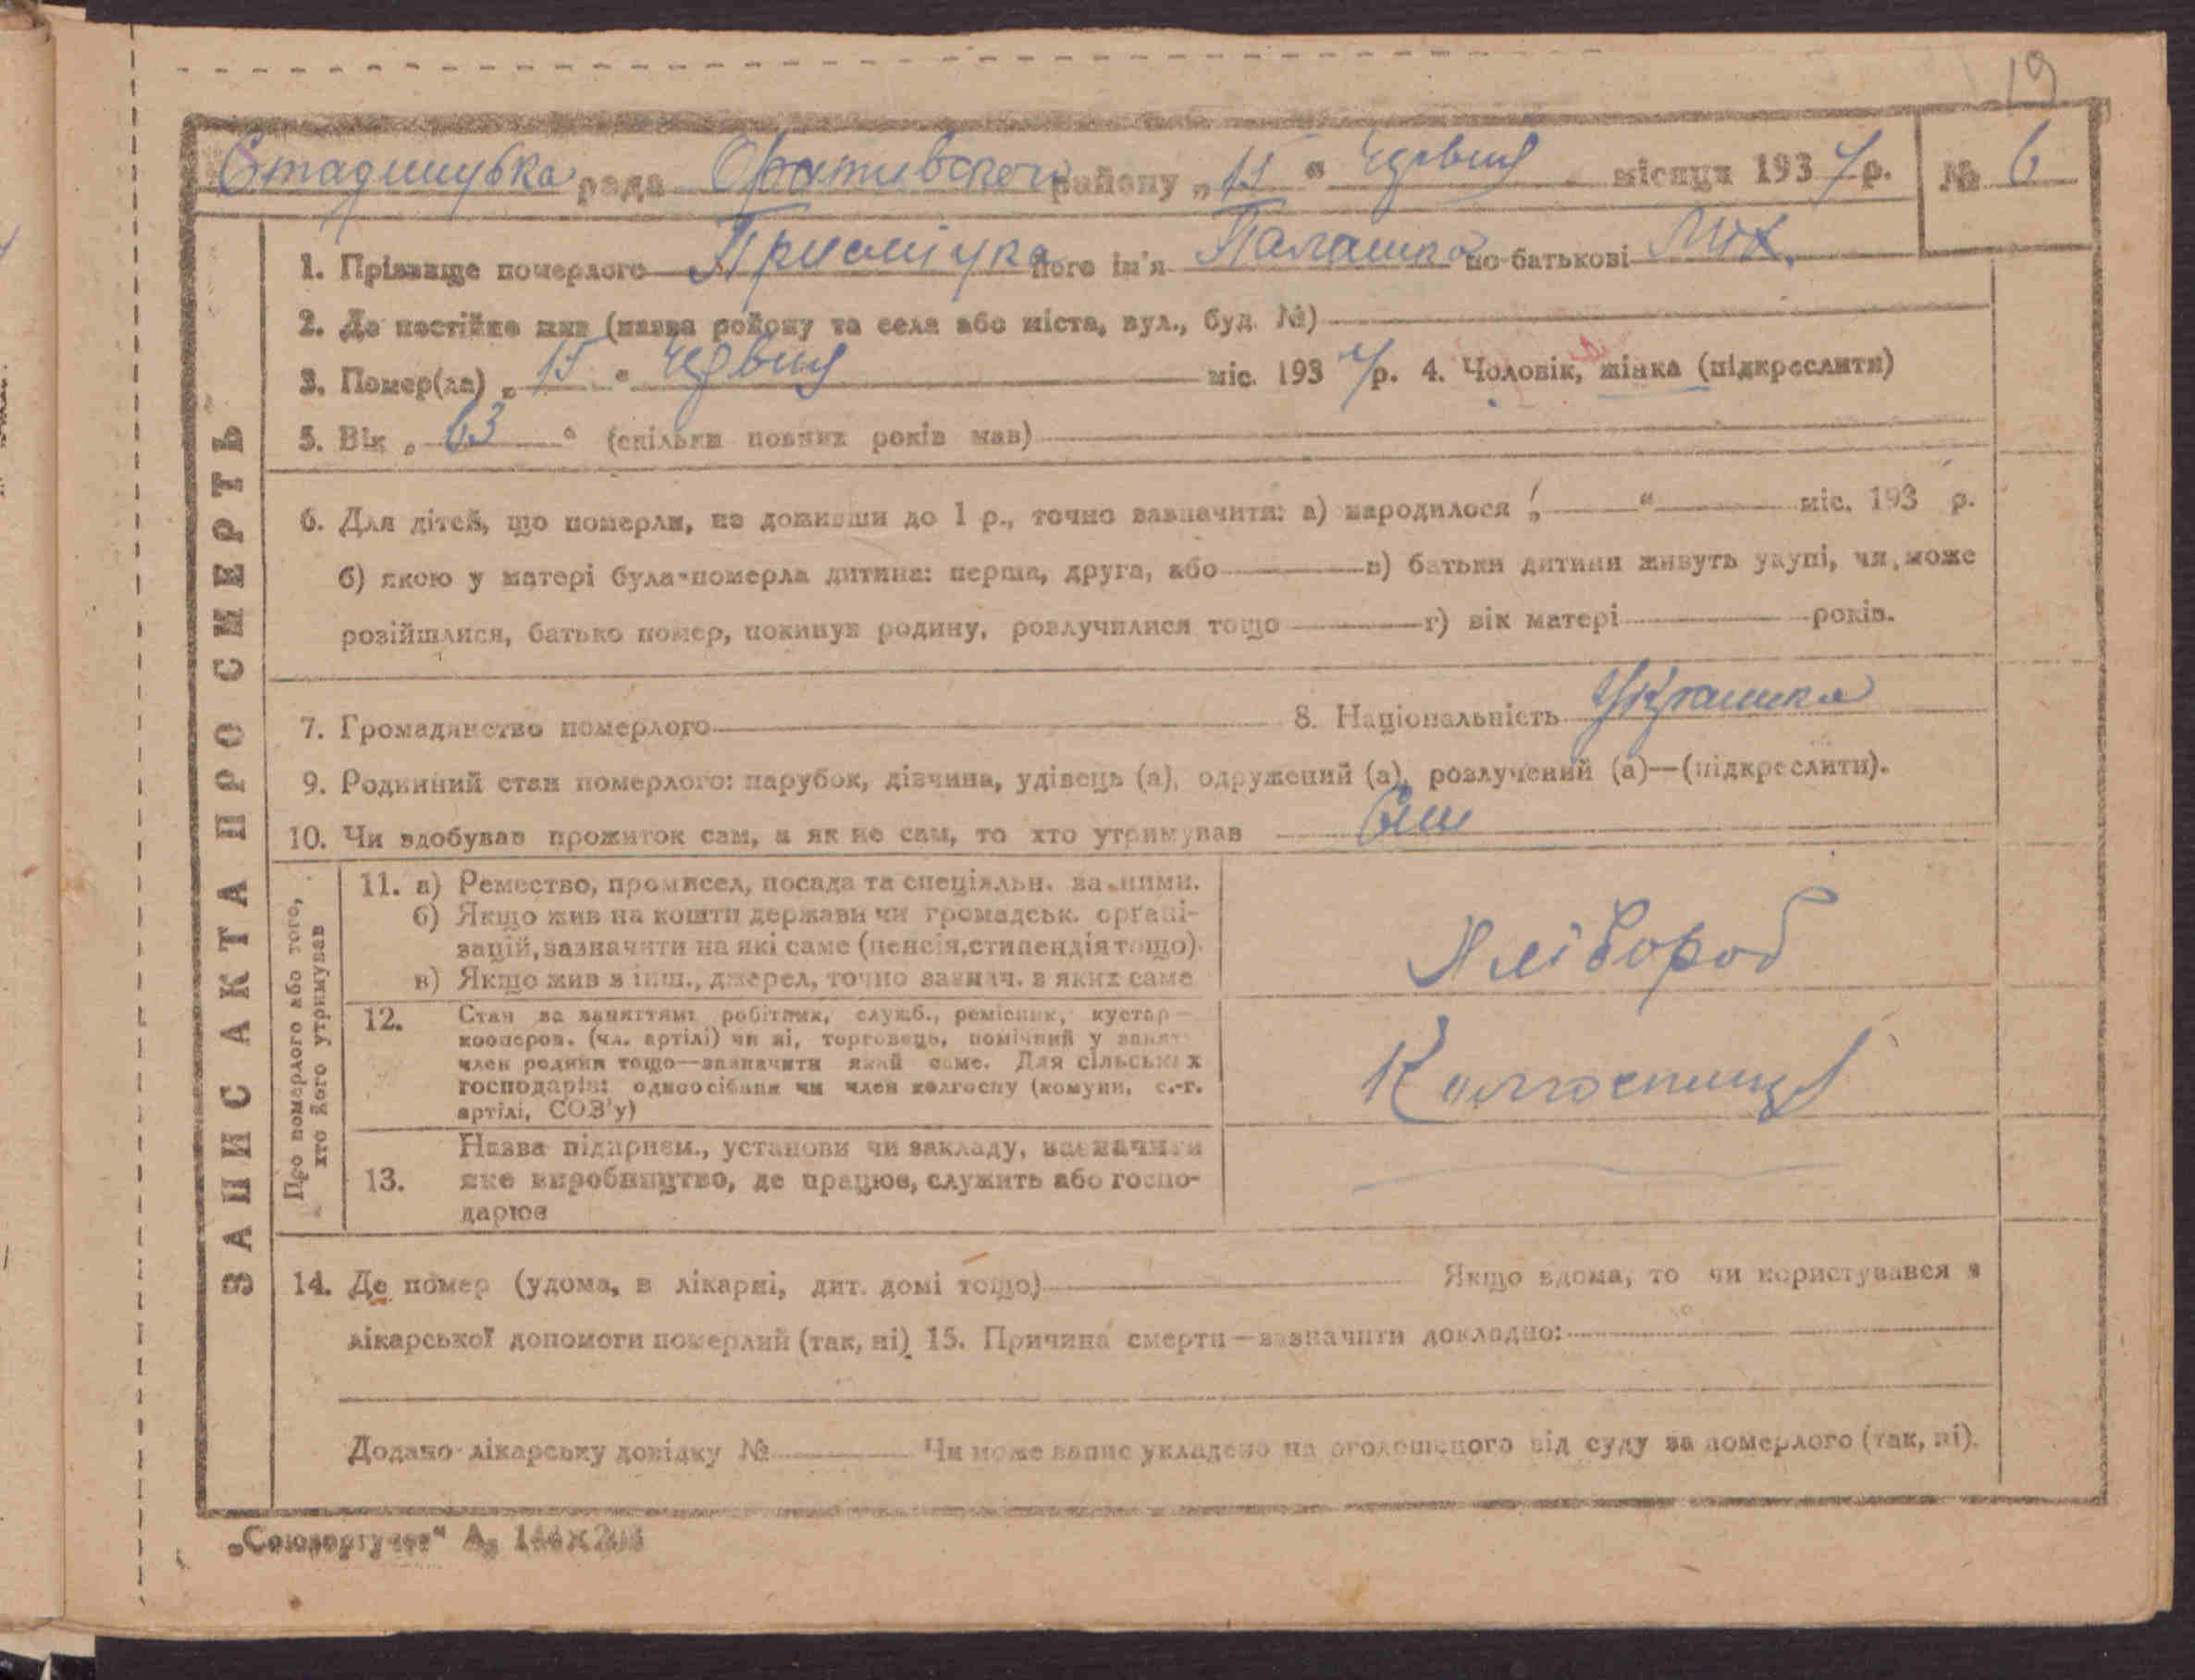 19
Стадницька рада Оратівського району „15“ червня місяця 1937 р. № 6
ЗАПИС АКТА ПРО СМЕРТЬ
1. Прізвище померлого його ім'я Палашка по-батькові Мих.
2. Де постійно жив (назва району та села або міста, вул., буд. №)
3. Помер(ла) „15“ червня міс. 1937 р. 4. Чоловік, жінка (підкреслити)
5. Вік „63“ (скільки повних років мав)
6. Для дітей, що померли, не доживши до 1 р., точно зазначити: а) народилося „ “ міс. 193 р.
б) якою у матері була померла дитина: перша, друга, або в) батьки дитини живуть укупі, чи може
розійшлися, батько помер, покинув родину, розлучилися тощо г) вік матері років.
7. Громадянство померлого 8. Національність Українка
9. Родинний стан померлого: парубок, дівчина, удівець (а), одружений (а), розлучений (а)—(підкреслити).
10. Чи здобував прожиток сам, а як не сам, то хто утримував
Про померлого або того,
хто його утримував
11. а) Ремество, промисел, посада та спеціяльн. за ними.
б) Якщо жив на кошти держави чи громадськ. орґані-
зацій, зазначити на які саме (пенсія, стипендія тощо).
в) Якщо жив з інш., джерел, точно зазнач. з яких саме
Хлібороб
12. Стан за заняттям: робітник, служб., ремісник, кустар—
кооперов. (чл. артілі) чи ні, торговець, помічний у занят.
член родини тощо—зазначити який саме. Для сільських
господарів: одноосібник чи член колгоспу (комуни, с.-г.
артілі, СОЗ'у)
Колгоспниця
13. Назва підприєм., установи чи закладу, зазначити
яке виробництво, де працює, служить або госпо-
дарює
14. Де помер (удома, в лікарні, дит. домі тощо) Якщо вдома, то чи користувався з
лікарської допомоги померлий (так, ні) 15. Причина смерти—зазначити докладно:
Додано лікарську довідку № Чи може запис укладено на оголошеного від суду за померлого (так, ні).
„Союзоргучет“